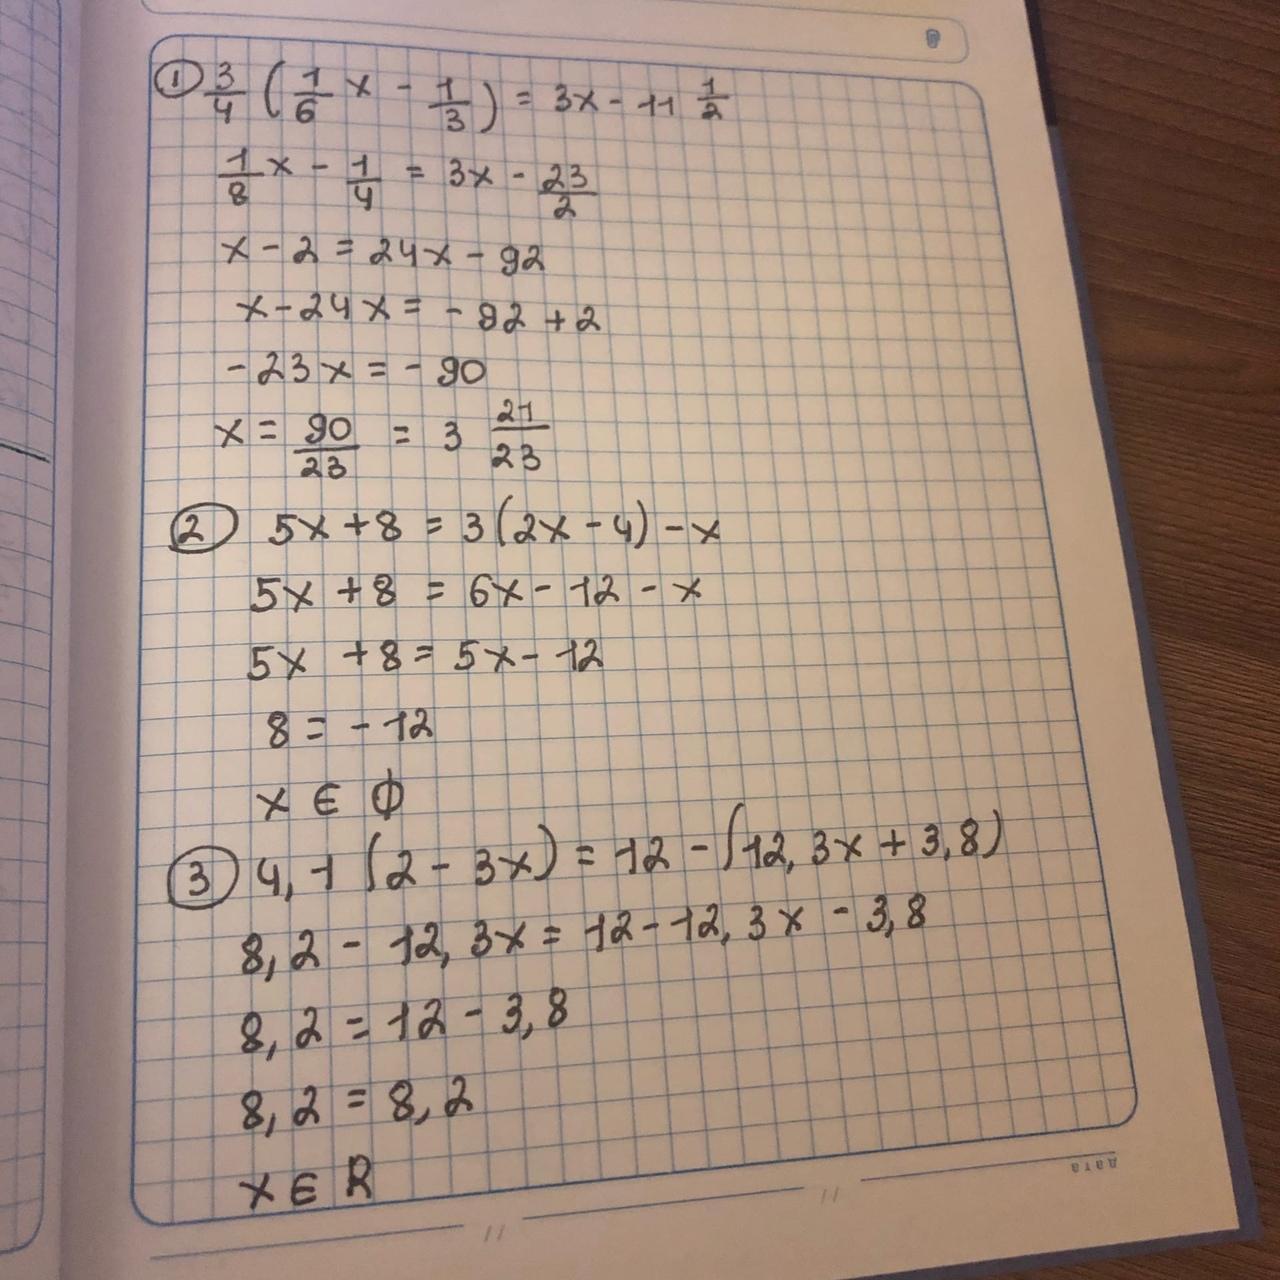 ① 3/4 (1/6 x - 1/3) = 3x - 11 1/2
1/8 x - 1/4 = 3x - 23/2
x - 2 = 24x - 92
x - 24x = - 92 + 2
- 23x = - 90
x = 90/23 = 3 21/23
② 5x + 8 = 3(2x - 4) - x
5x + 8 = 6x - 12 - x
5x + 8 = 5x - 12
8 = - 12
x ∈ ϕ
③ 4,1 (2 - 3x) = 12 - (12,3x + 3,8)
8,2 - 12,3x = 12 - 12,3x - 3,8
8,2 = 12 - 3,8
8,2 = 8,2
x ∈ R
дата